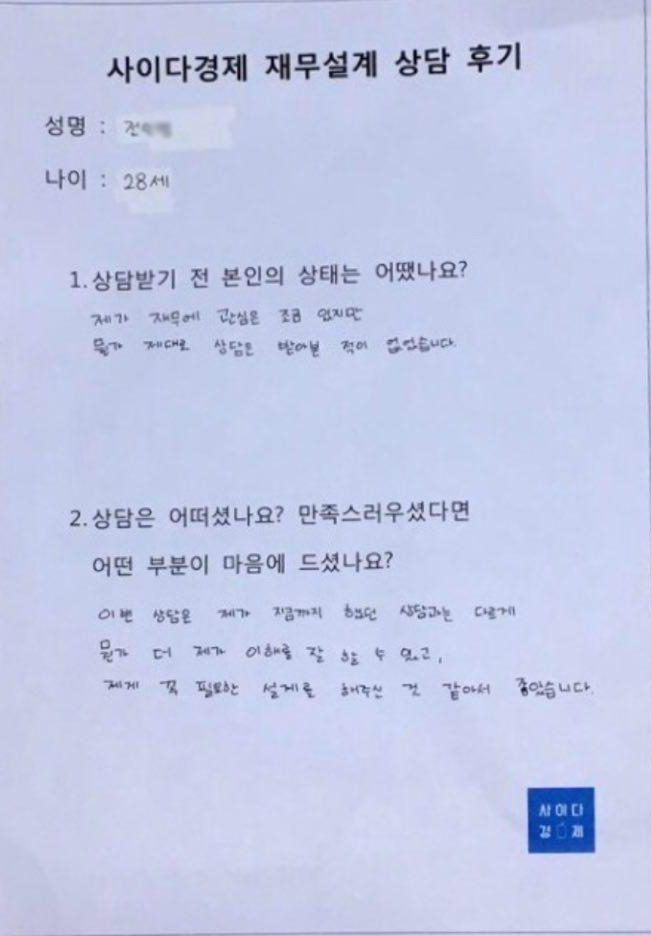 사이다경제 재무설계 상담 후기
성명 : 전
나이 : 28세
1. 상담받기 전 본인의 상태는 어땠나요?
제가 재무에 관심은 조금 있지만
뭔가 제대로 상담은 받아본 적이 없었습니다.
2. 상담은 어떠셨나요? 만족스러우셨다면
어떤 부분이 마음에 드셨나요?
이번 상담은 제가 지금까지 했던 상담과는 다르게
뭔가 더 제가 이해를 잘 할 수 있고,
제게 꼭 필요한 설계를 해주신 것 같아서 좋았습니다.
사이다
경제